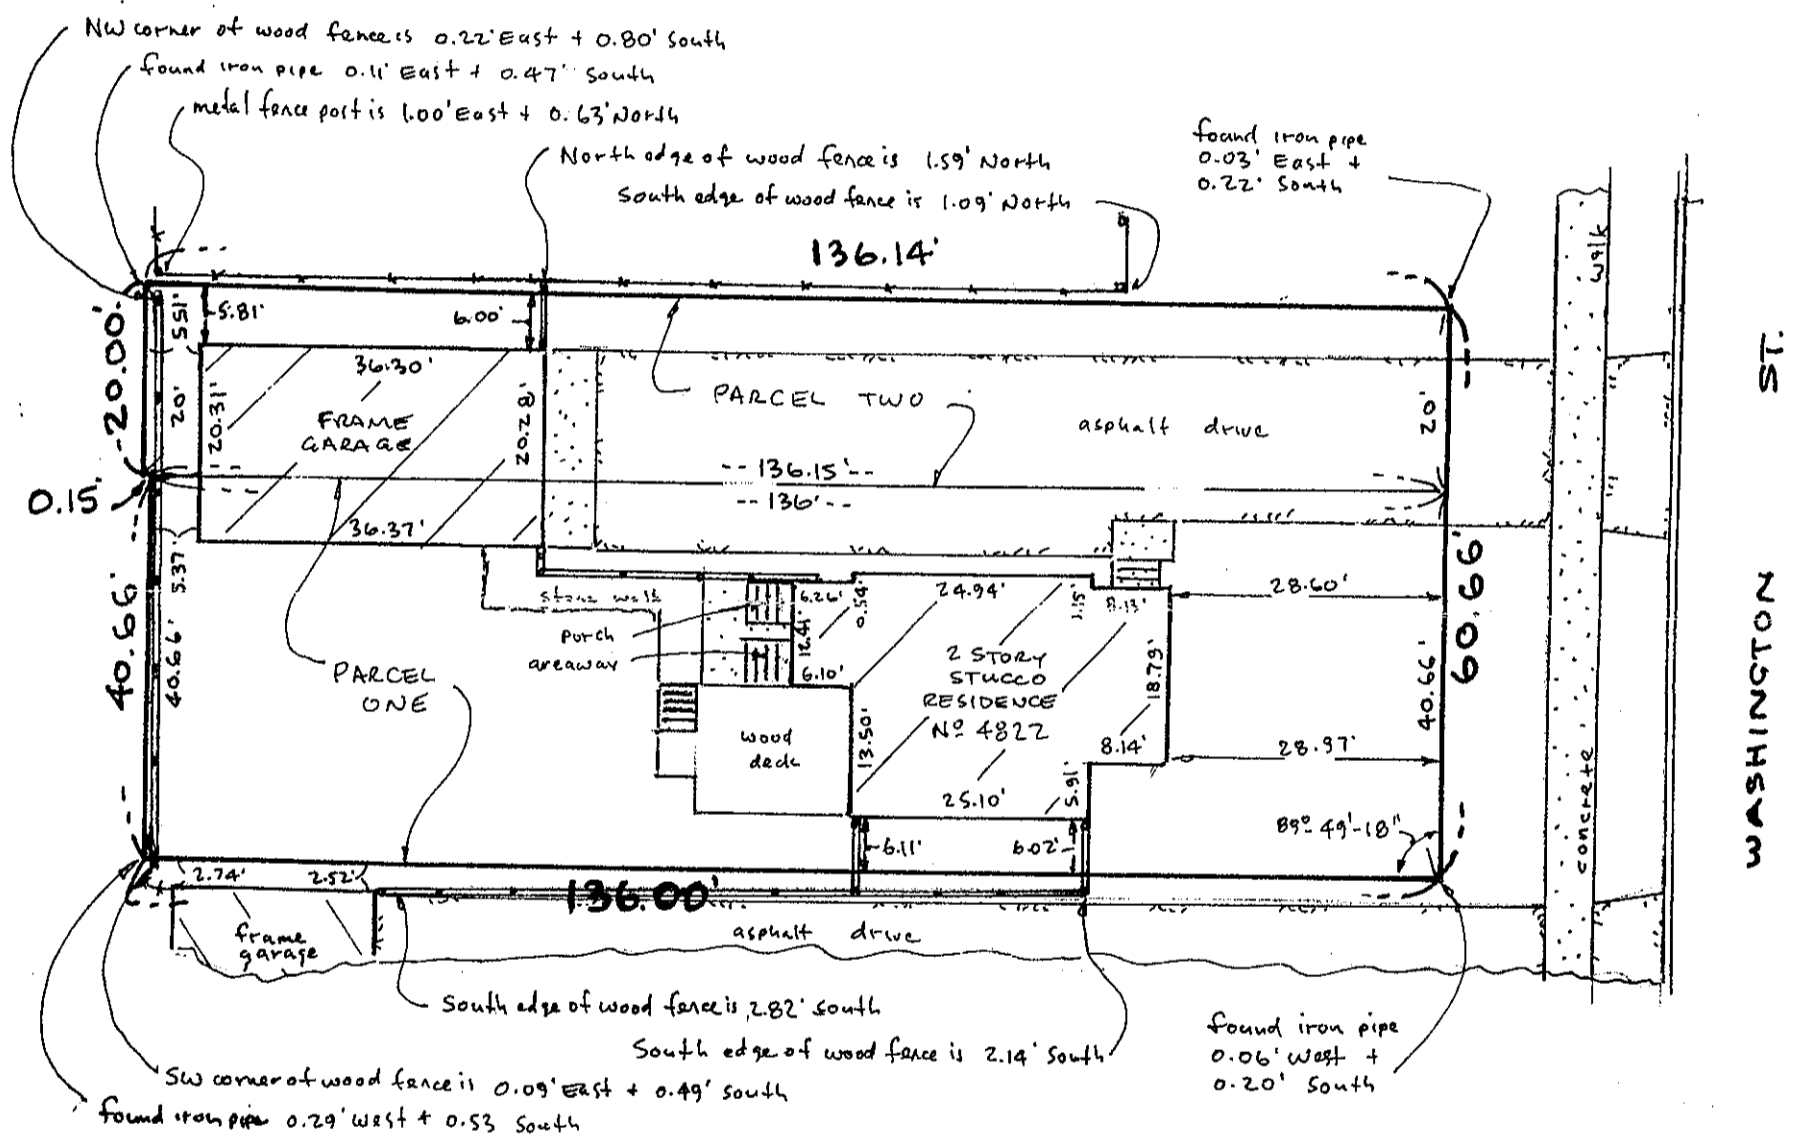 NW corner of wood fence is 0.22' East + 0.80' South
found iron pipe 0.11' East + 0.47' South
metal fence post is 1.00' East + 0.63' North
North edge of wood fence is 1.59' North
South edge of wood fence is 1.09' North
found iron pipe
0.03' East +
0.22' South
136.14'
walk
ST.
20.00'
5.51'
5.81'
6.00'
36.30'
20'
20.31'
FRAME
GARAGE
20.28'
PARCEL TWO
asphalt drive
20'
--136.15'--
--136'--
0.15'
36.37'
40.66'
5.37'
40.66'
stone walk
porch
areaway
6.26'
0.54'
12.41'
6.10'
24.94'
1.15'
8.13'
28.60'
60.66'
PARCEL
ONE
2 STORY
STUCCO
RESIDENCE
Nº 4822
18.79'
40.66'
WASHINGTON
wood
deck
13.50'
8.14'
28.97'
25.10'
5.91'
89°-49'-18"
concrete
6.11'
6.02'
2.74'
2.52'
136.00'
frame
garage
asphalt drive
South edge of wood fence is 2.82' South
South edge of wood fence is 2.14' South
found iron pipe
0.06' West +
0.20' South
SW corner of wood fence is 0.09' East + 0.49' South
found iron pipe 0.29' West + 0.53 South